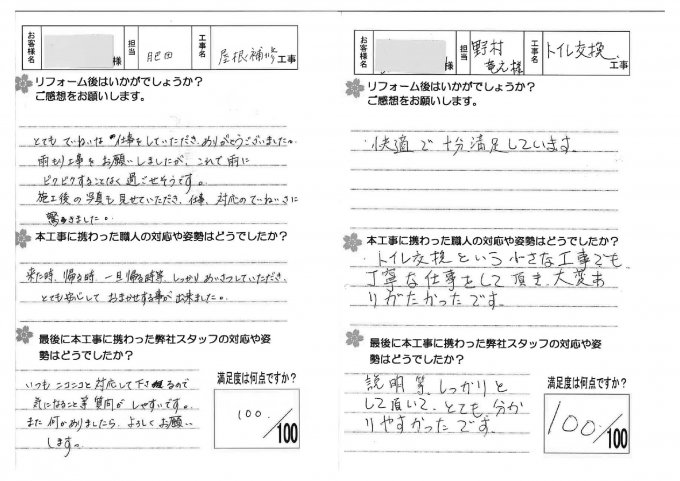 お客様名
様
担当
肥田
工事名
屋根補修
工事
リフォーム後はいかがでしょうか?
ご感想をお願いします。
とてもていねいな仕事をしていただき、ありがとうございました。
雨もり工事をお願いしましたが、これで雨に
ビクビクすることなく過ごせそうです。
施工後の写真も見せていただき、仕事、対応のていねいさに
驚きました。
本工事に携わった職人の対応や姿勢はどうでしたか?
来た時、帰る時、一旦帰る時等、しっかりあいさつしていただき、
とても安心しておまかせする事が出来ました。
最後に本工事に携わった弊社スタッフの対応や姿
勢はどうでしたか?
いつもニコニコと対応して下さるので
気になること等質問がしやすいです。
また何かありましたら、よろしくお願い
します。
満足度は何点ですか?
100/100
お客様名
様
担当
野村
竜元様
工事名
トイレ交換
工事
リフォーム後はいかがでしょうか?
ご感想をお願いします。
・快適で十分満足しています。
本工事に携わった職人の対応や姿勢はどうでしたか?
・トイレ交換という小さな工事でも
丁寧な仕事をして頂き、大変あ
りがたかったです。
最後に本工事に携わった弊社スタッフの対応や姿
勢はどうでしたか?
説明等、しっかりと
して頂いて、とても分か
りやすかったです。
満足度は何点ですか?
100/100